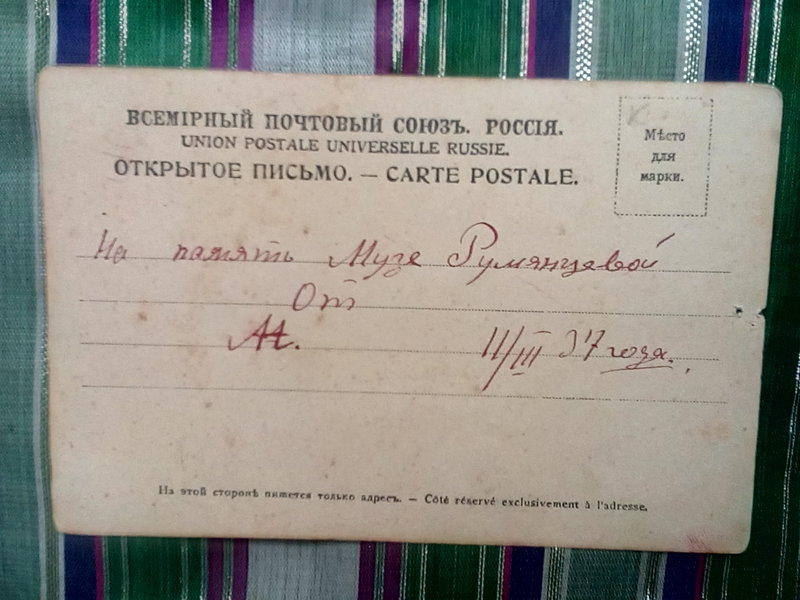 ВСЕМІРНЫЙ ПОЧТОВЫЙ СОЮЗЪ. РОССІЯ.
UNION POSTALE UNIVERSELLE RUSSIE.
ОТКРЫТОЕ ПИСЬМО. — CARTE POSTALE.
Мѣсто
для
марки.
На память Музе Румянцевой
От
11/III 37 года.
На этой сторонѣ пишется только адресъ. — Côté réservé exclusivement à l'adresse.